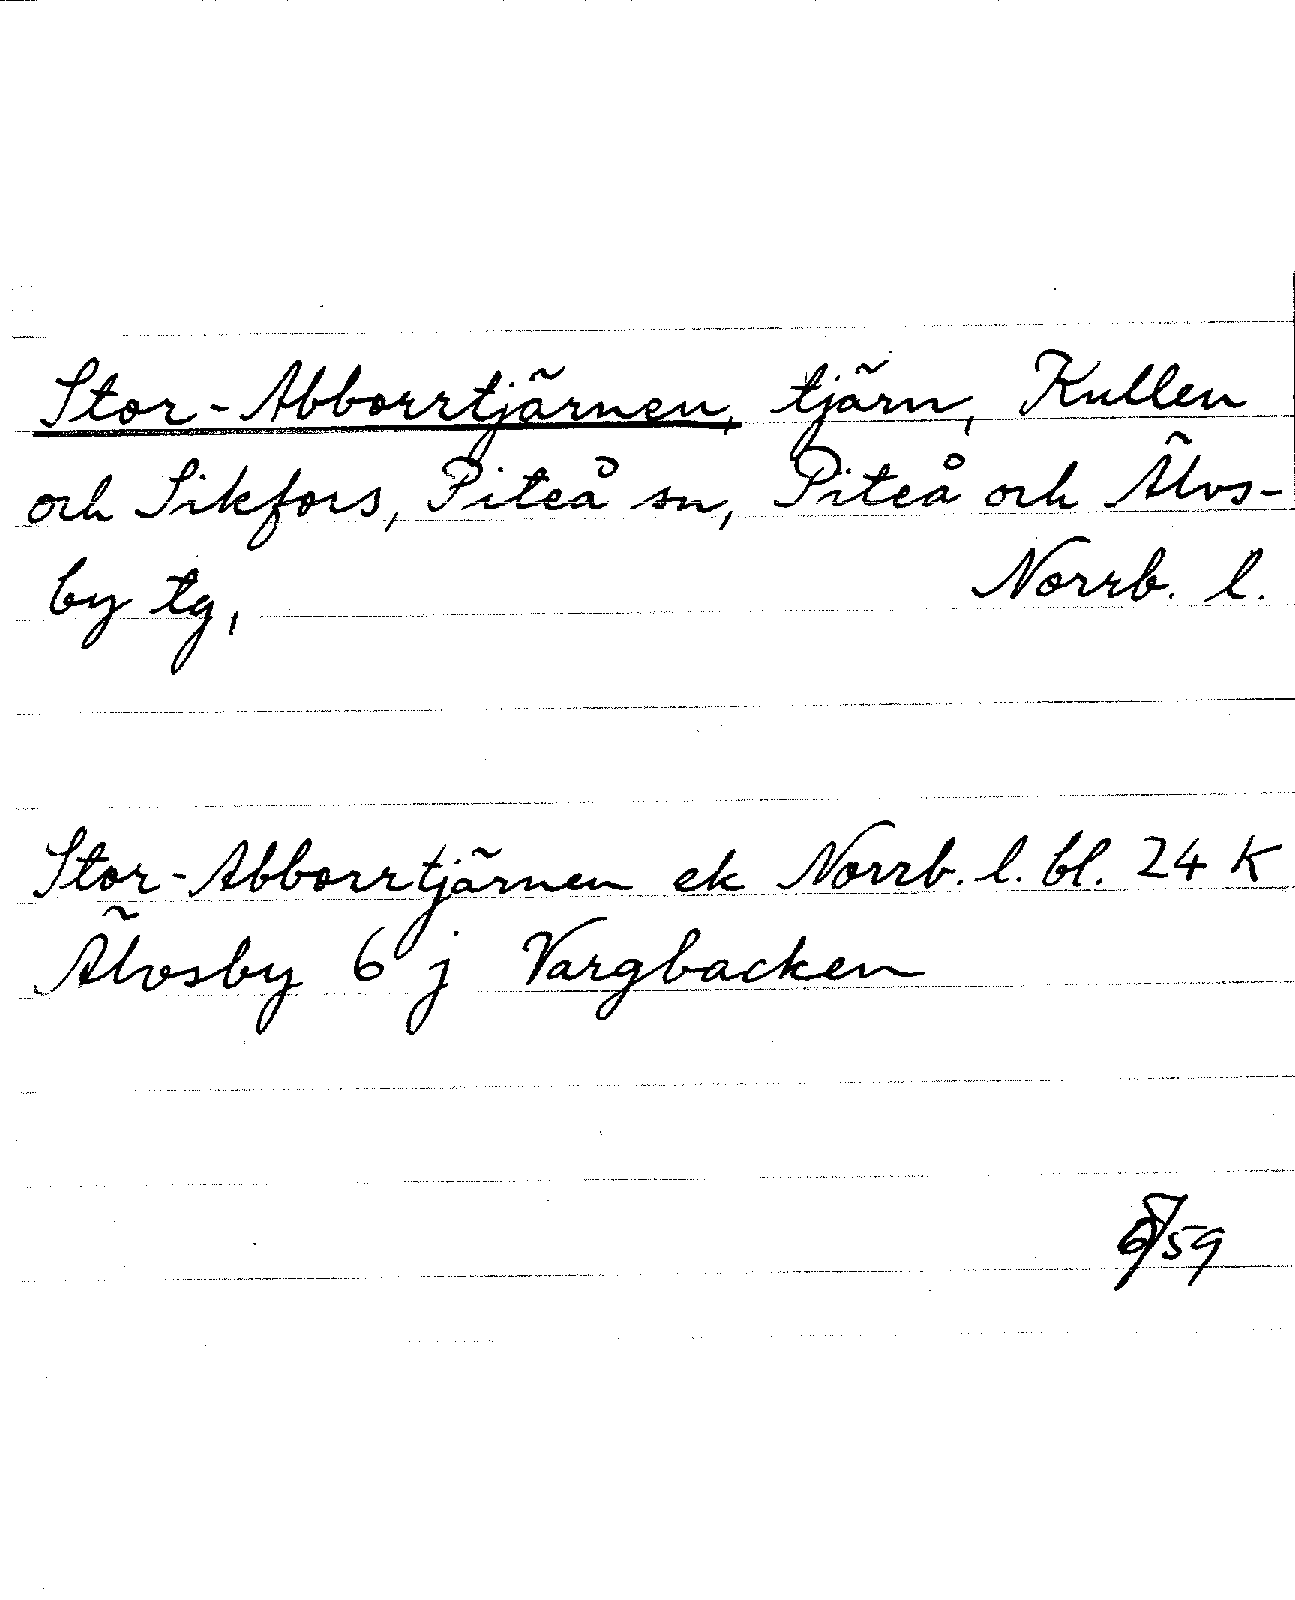 Stor-Abborrtjärnen, tjärn, Kullen
och Sikfors, Piteå sn, Piteå och Älvs-
by tg, Norrb. l.
Stor-Abborrtjärnen ek Norrb. l. bl. 24 K
Älvsby 6 j Vargbacken